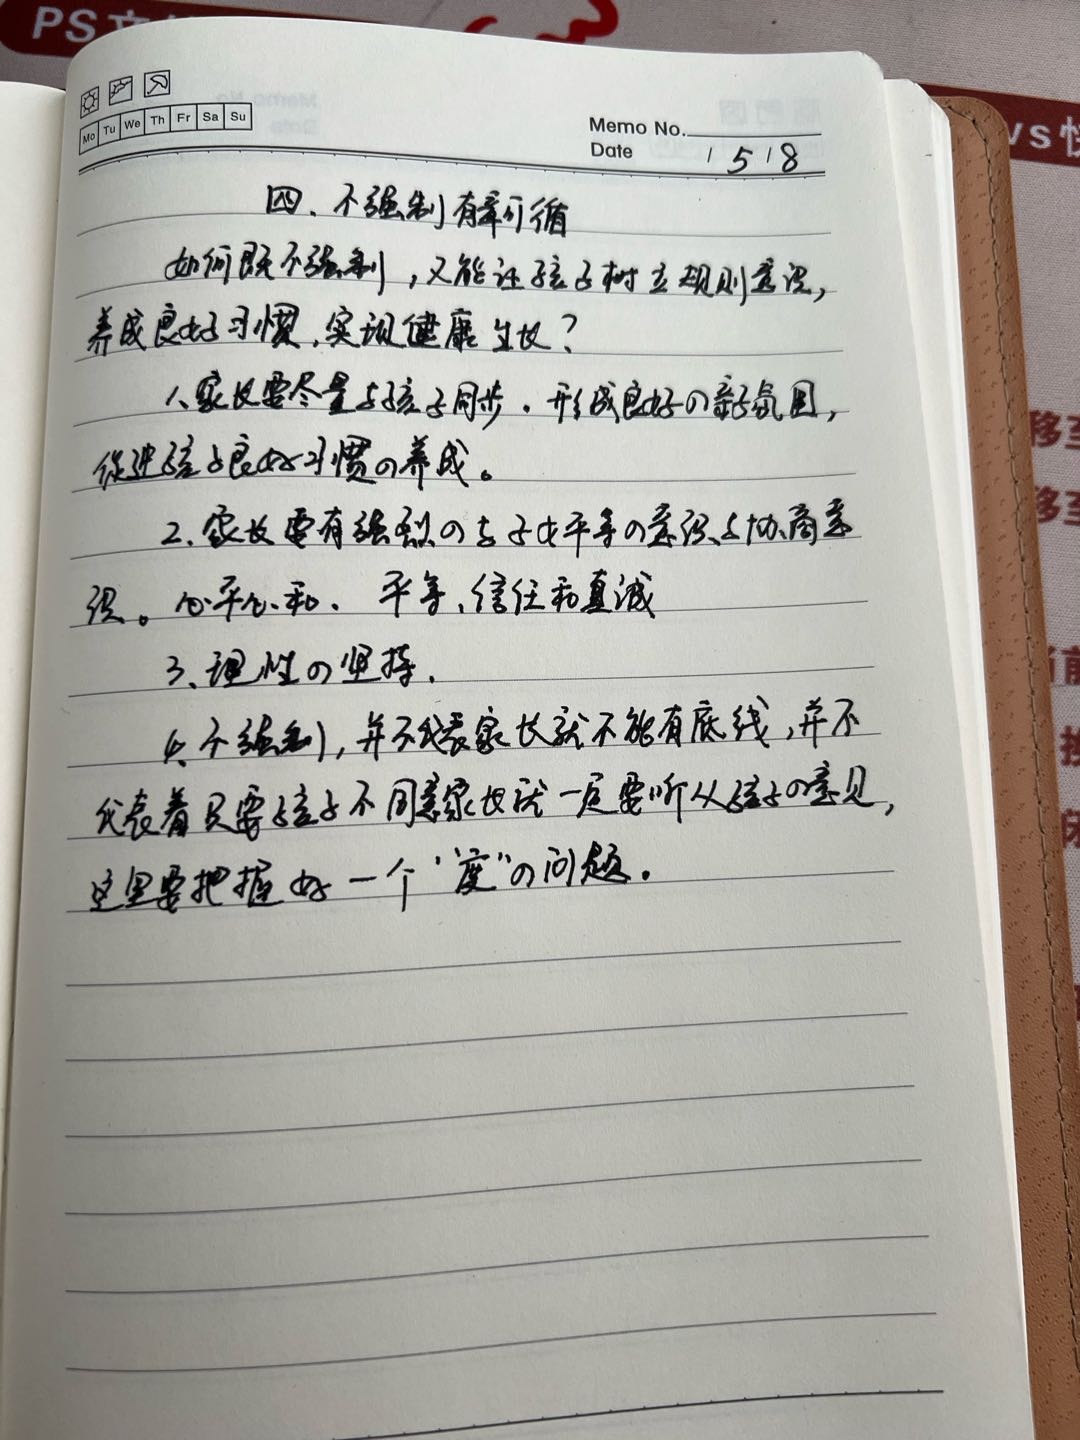 PS
Mo Tu We Th Fr Sa Su
Memo No.
Date / 5 / 8
四、不强制有章可循
如何既不强制,又能让孩子树立规则意识,
养成良好习惯,实现健康生长?
1、家长要尽量与孩子同步。形成良好の亲子氛围,
促进孩子良好习惯の养成。
2、家长要有强烈の与子女平等の意识与协商意
识。心平心和. 平等、信任和真诚
3、理性の坚持.
4、不强制,并不代表家长就不能有底线,并不
代表着只要孩子不同意家长就一定要听从孩子の意见,
这里要把握好一个“度”の问题。
vs 快
移至
移至
当前